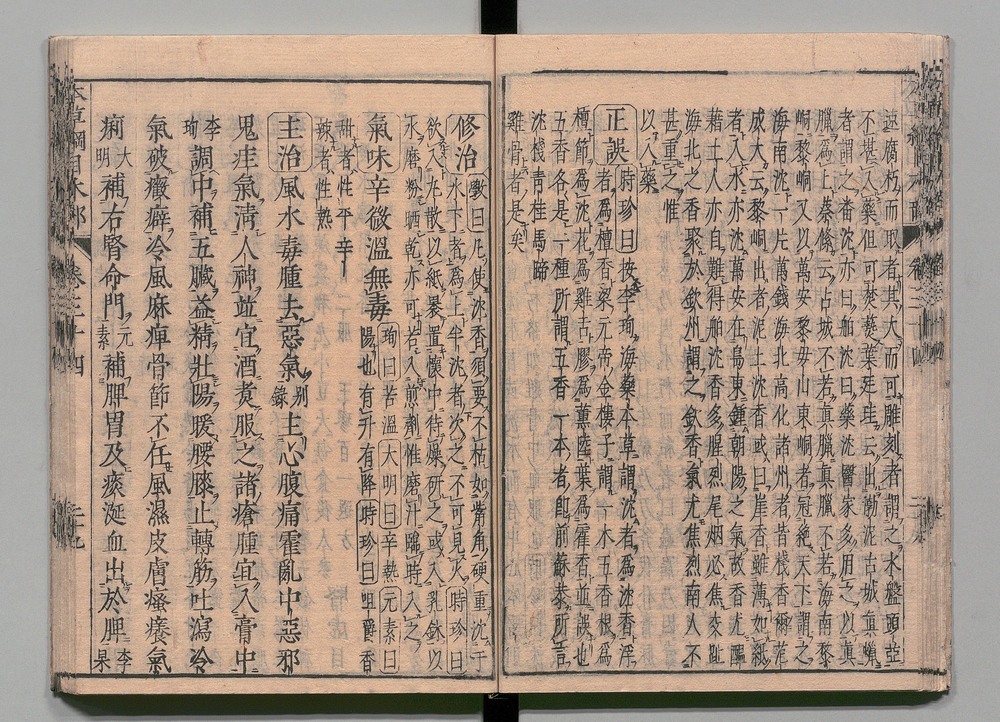 速腐朽而取者其大而可雕刻者謂之水盤頭並
不堪入藥但可焚爇葉廷珪云出渤泥占城真臘
者謂之番沈亦曰舶沈曰藥沈醫家多用之以真
臘為上蔡絛云占城不若真臘真臘不若海南黎
峒黎峒又以萬安黎母山東峒者冠絕天下謂之
海南沈一片萬錢海北高化諸州者皆棧香爾范
成大云黎峒出者名土沈香或曰崖香雖薄如紙
者入水亦沈萬安在島東鍾朝陽之氣故香尤醞
藉土人亦自難得舶沈香多腥烈尾烟必焦交趾
海北之香聚於欽州謂之欽香氣尤焦烈南人不
甚重之惟
以入藥
正誤 時珍曰按李珣海藥本草謂沈者為沈香浮
者為檀香梁元帝金樓子謂一木五香根為
檀節為沈花為雞舌膠為薰陸葉為藿香並誤也
五香各是一種所謂五香一本者即前蘇恭所言
沈棧青桂馬蹄
雞骨者是矣
修治 斅曰凡使沈香須要不枯如觜角硬重沈于
水下者為上半沈者次之不可見火時珍曰
欲入丸散以紙裹置懷中待燥研之或入乳鉢以
水磨粉晒乾亦可若入煎劑惟磨汁臨時入之
氣味辛微溫無毒 珣曰苦溫大明曰辛熱元素曰
陽也有升有降時珍曰咀嚼香
甜者性平辛
辣者性熱
主治風水毒腫去惡氣別錄主心腹痛霍亂中惡邪
鬼疰氣清人神並宜酒煮服之諸瘡腫宜入膏中
李珣調中補五臟益精壯陽暖腰膝止轉筋吐瀉冷
氣破癥癖冷風麻痺骨節不任風濕皮膚瘙癢氣
痢大明補右腎命門元素補脾胃及痰涎血出於脾李杲
本草綱目木部
卷三十四